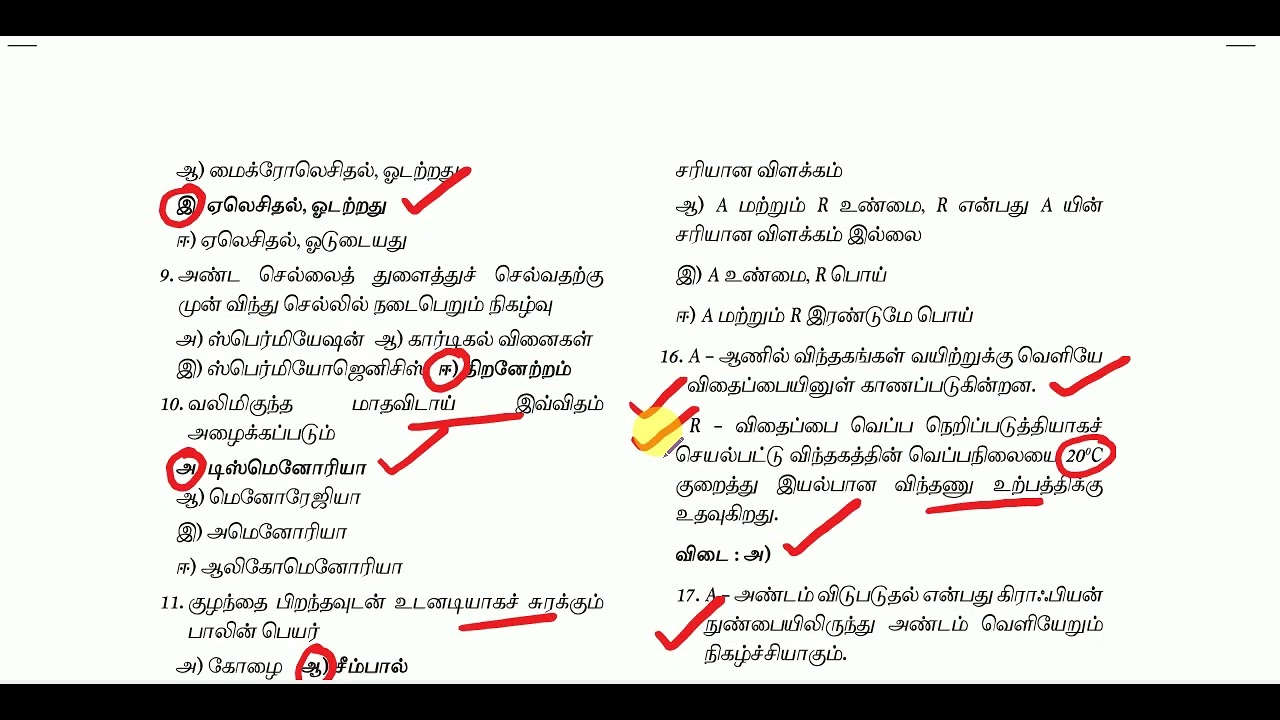 ஆ) மைக்ரோலெசிதல், ஓடற்றது
இ) ஏலெசிதல், ஓடற்றது
ஈ) ஏலெசிதல், ஓடுடையது
9. அண்ட செல்லைத் துளைத்துச் செல்வதற்கு
முன் விந்து செல்லில் நடைபெறும் நிகழ்வு
அ) ஸ்பெர்மியேஷன் ஆ) கார்டிகல் வினைகள்
இ) ஸ்பெர்மியோஜெனிசிஸ் ஈ) திறனேற்றம்
10. வலிமிகுந்த மாதவிடாய் இவ்விதம்
அழைக்கப்படும்
அ) டிஸ்மெனோரியா
ஆ) மெனோரேஜியா
இ) அமெனோரியா
ஈ) ஆலிகோமெனோரியா
11. குழந்தை பிறந்தவுடன் உடனடியாகச் சுரக்கும்
பாலின் பெயர்
அ) கோழை ஆ) சீம்பால்
சரியான விளக்கம்
ஆ) A மற்றும் R உண்மை, R என்பது A யின்
சரியான விளக்கம் இல்லை
இ) A உண்மை, R பொய்
ஈ) A மற்றும் R இரண்டுமே பொய்
16. A – ஆணில் விந்தகங்கள் வயிற்றுக்கு வெளியே
விதைப்பையினுள் காணப்படுகின்றன.
R – விதைப்பை வெப்ப நெறிப்படுத்தியாகச்
செயல்பட்டு விந்தகத்தின் வெப்பநிலையை 20⁰C
குறைத்து இயல்பான விந்தணு உற்பத்திக்கு
உதவுகிறது.
விடை : அ)
17. A – அண்டம் விடுபடுதல் என்பது கிராஃபியன்
நுண்பையிலிருந்து அண்டம் வெளியேறும்
நிகழ்ச்சியாகும்.